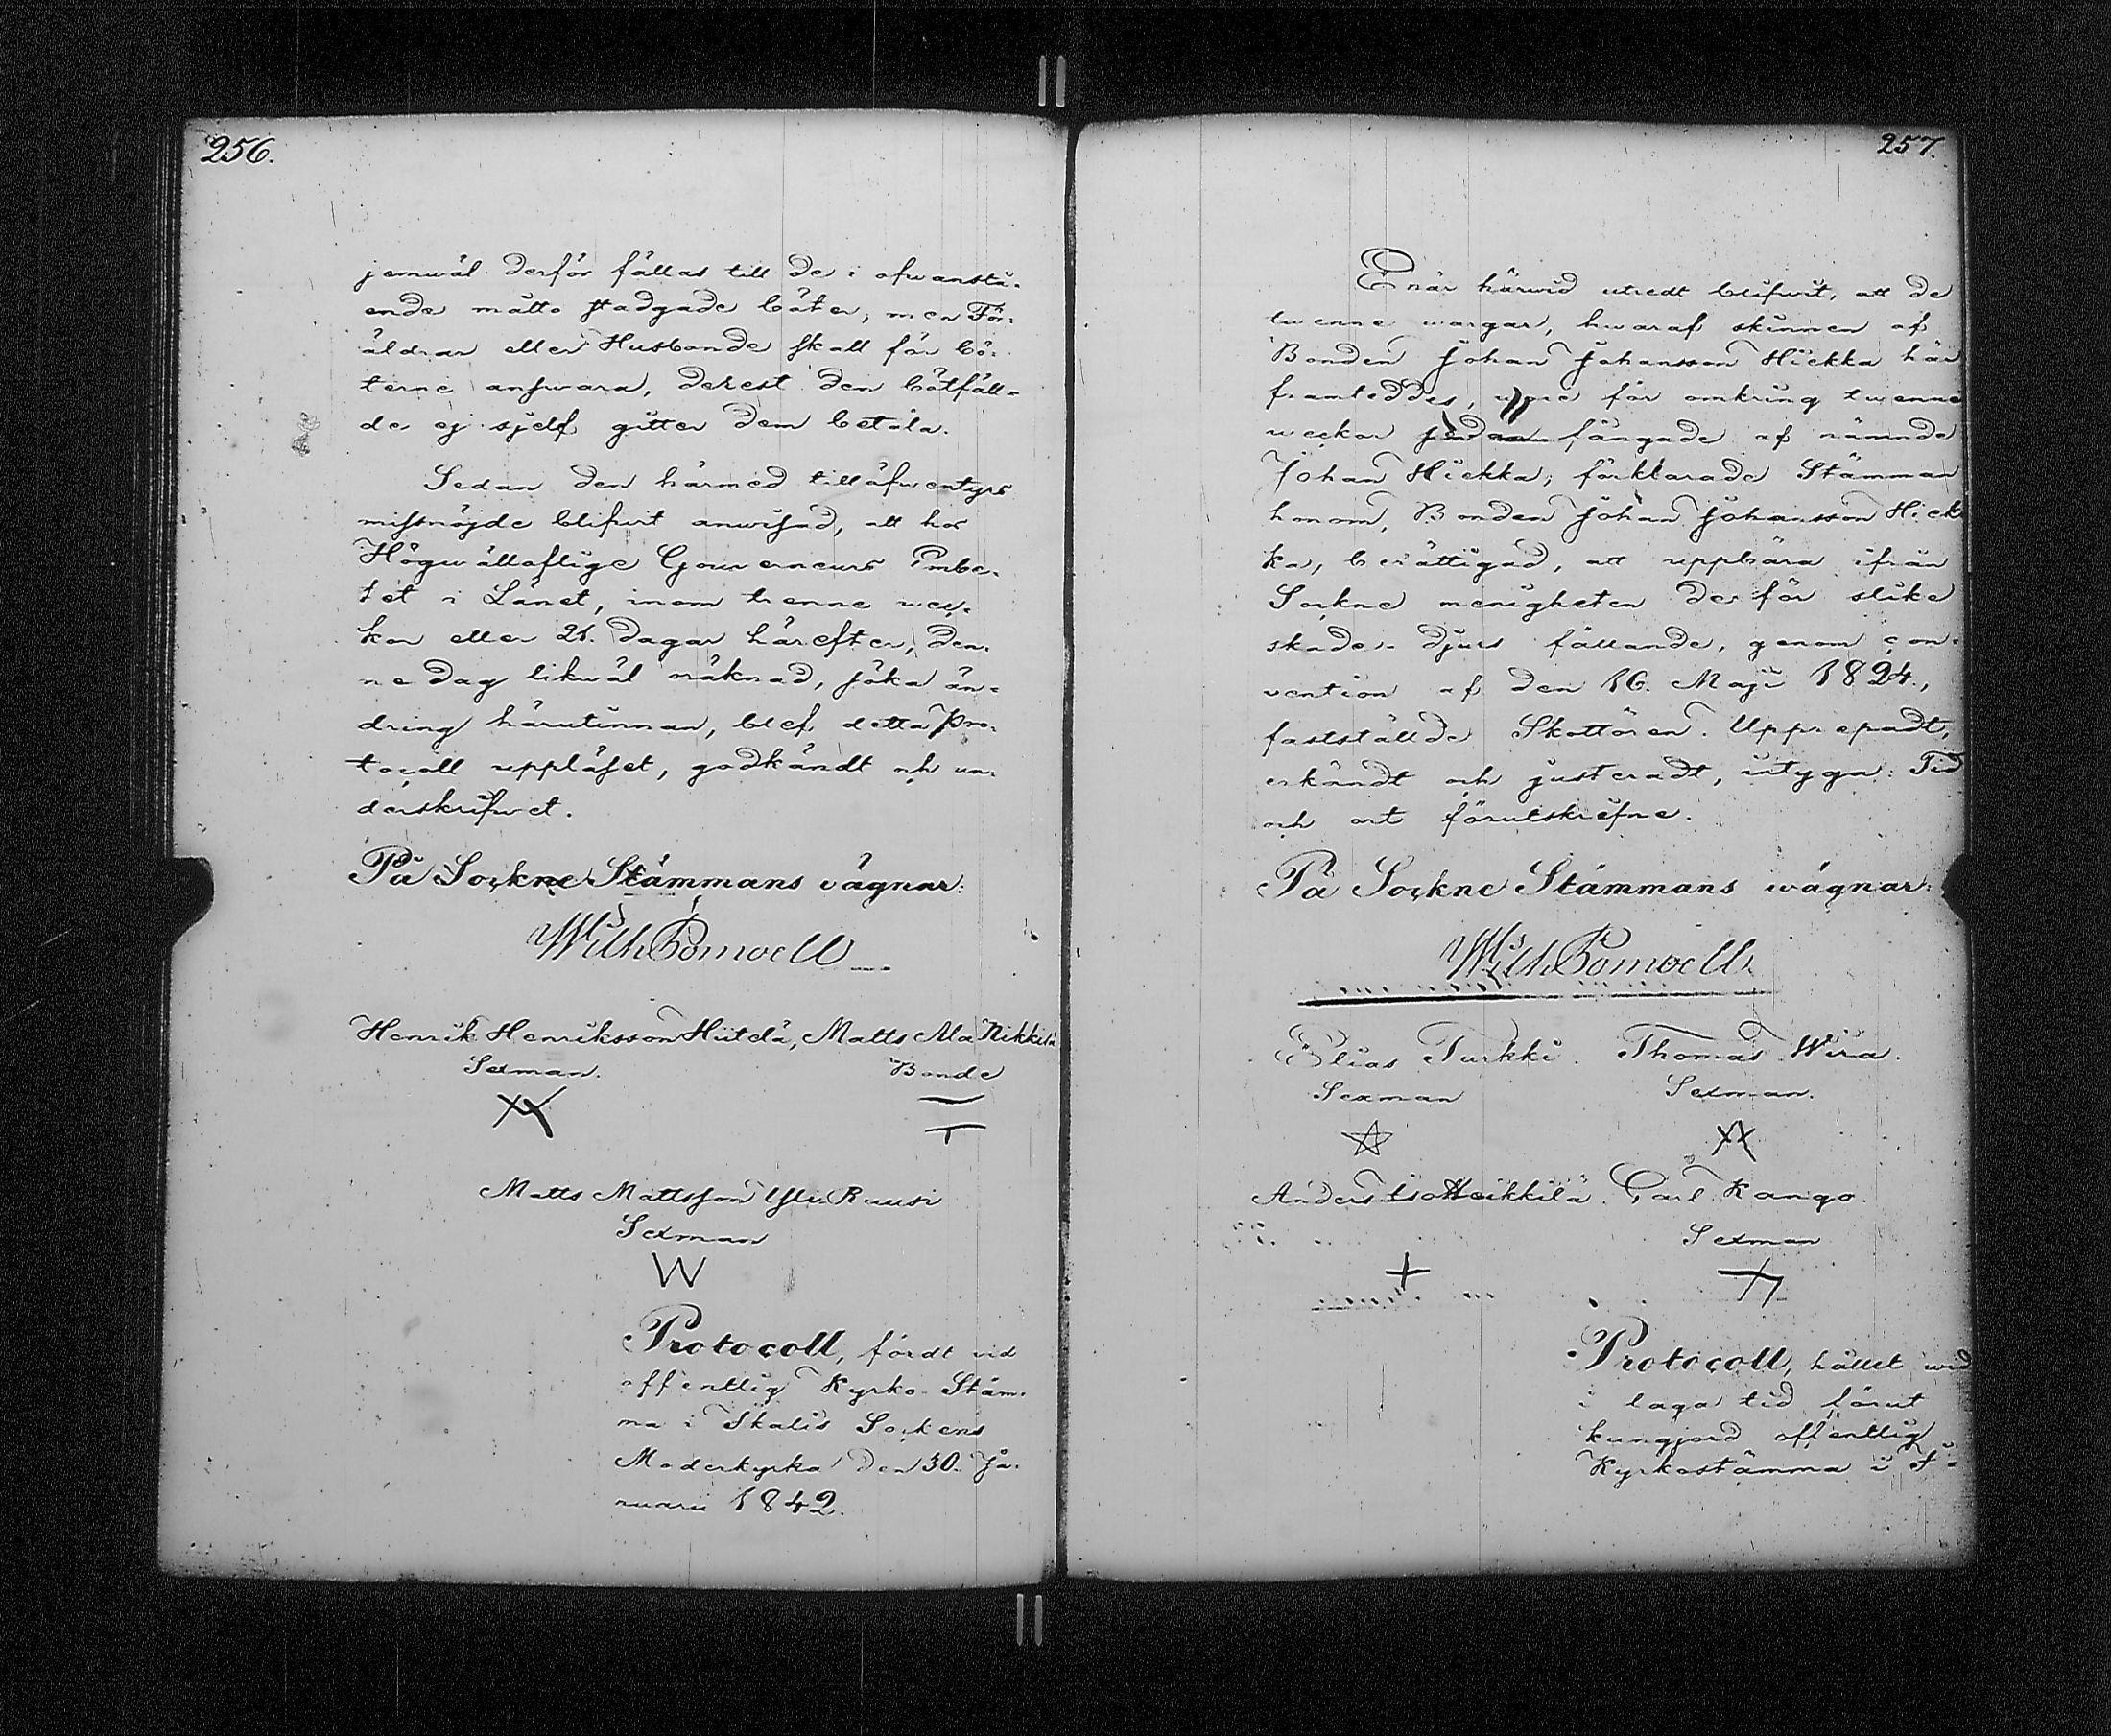 256.
jemwäl derför fällas till de i ofwanstå-
ende måtto stadgade böter, men För-
äldrar eller Husbonde skall för bö-
terne answara, derest den bötfäll-
de ej sjelf gitter dem betala.
Sedan den härmed tilläfwentyrs
missnöjde blifwit anwisad, att hos
Högwällofliga Gouverneurs Embe-
tet i Länet, inom trenne wec-
kor eller 21. dagar härefter, den-
ne dag likwäl oräknad, söka än-
dring härutinnan, blef detta Pro-
tocoll uppläset, godkändt och un-
derskrifwet.
På Sockne Stämmans vägnar:
Wilh Pomoell
Henrik Henriksson Hiitelä, Matts Ala Nikkilä
Sexman. Bonde
Matts Mattsson Yli Ruusi
Sexman
W
Protocoll, fördt vid
offentlig Kyrko-Stäm-
ma i Ikalis Sockens
Moderkyrka den 30. Ja-
nuarii 1842.
257.
Enär härwid utredt blifwit, att de
twenne wargar, hwaraf skinnen af
Bonden Johan Johansson Hiekka här
framteddes, woro för omkring twenne
weckor sedan fångade af nämnde
Johan Hiekka; förklarade Stämman
honom, Bonden Johan Johansson Hiek-
ka, berättigad, att uppbära ifrån
Sockne menigheten den för slike
skade-djurs fällande, genom con-
vention af den 16. Maji 1824.,
fastställde Skottören. Upprepadt,
erkändt och justeradt, intyga: Tid
och ort förutskrefne.
På Sockne Stämmans wägnar:
Wilh Pomoell
Elias Turkki. Thomas Wira.
Sexman Sexman.
Anders Iso Heikkilä. Carl Kango.
Sexman
Protocoll, hållet wid
i laga tid förut
kungjord offentlig
Kyrkostämma i I-